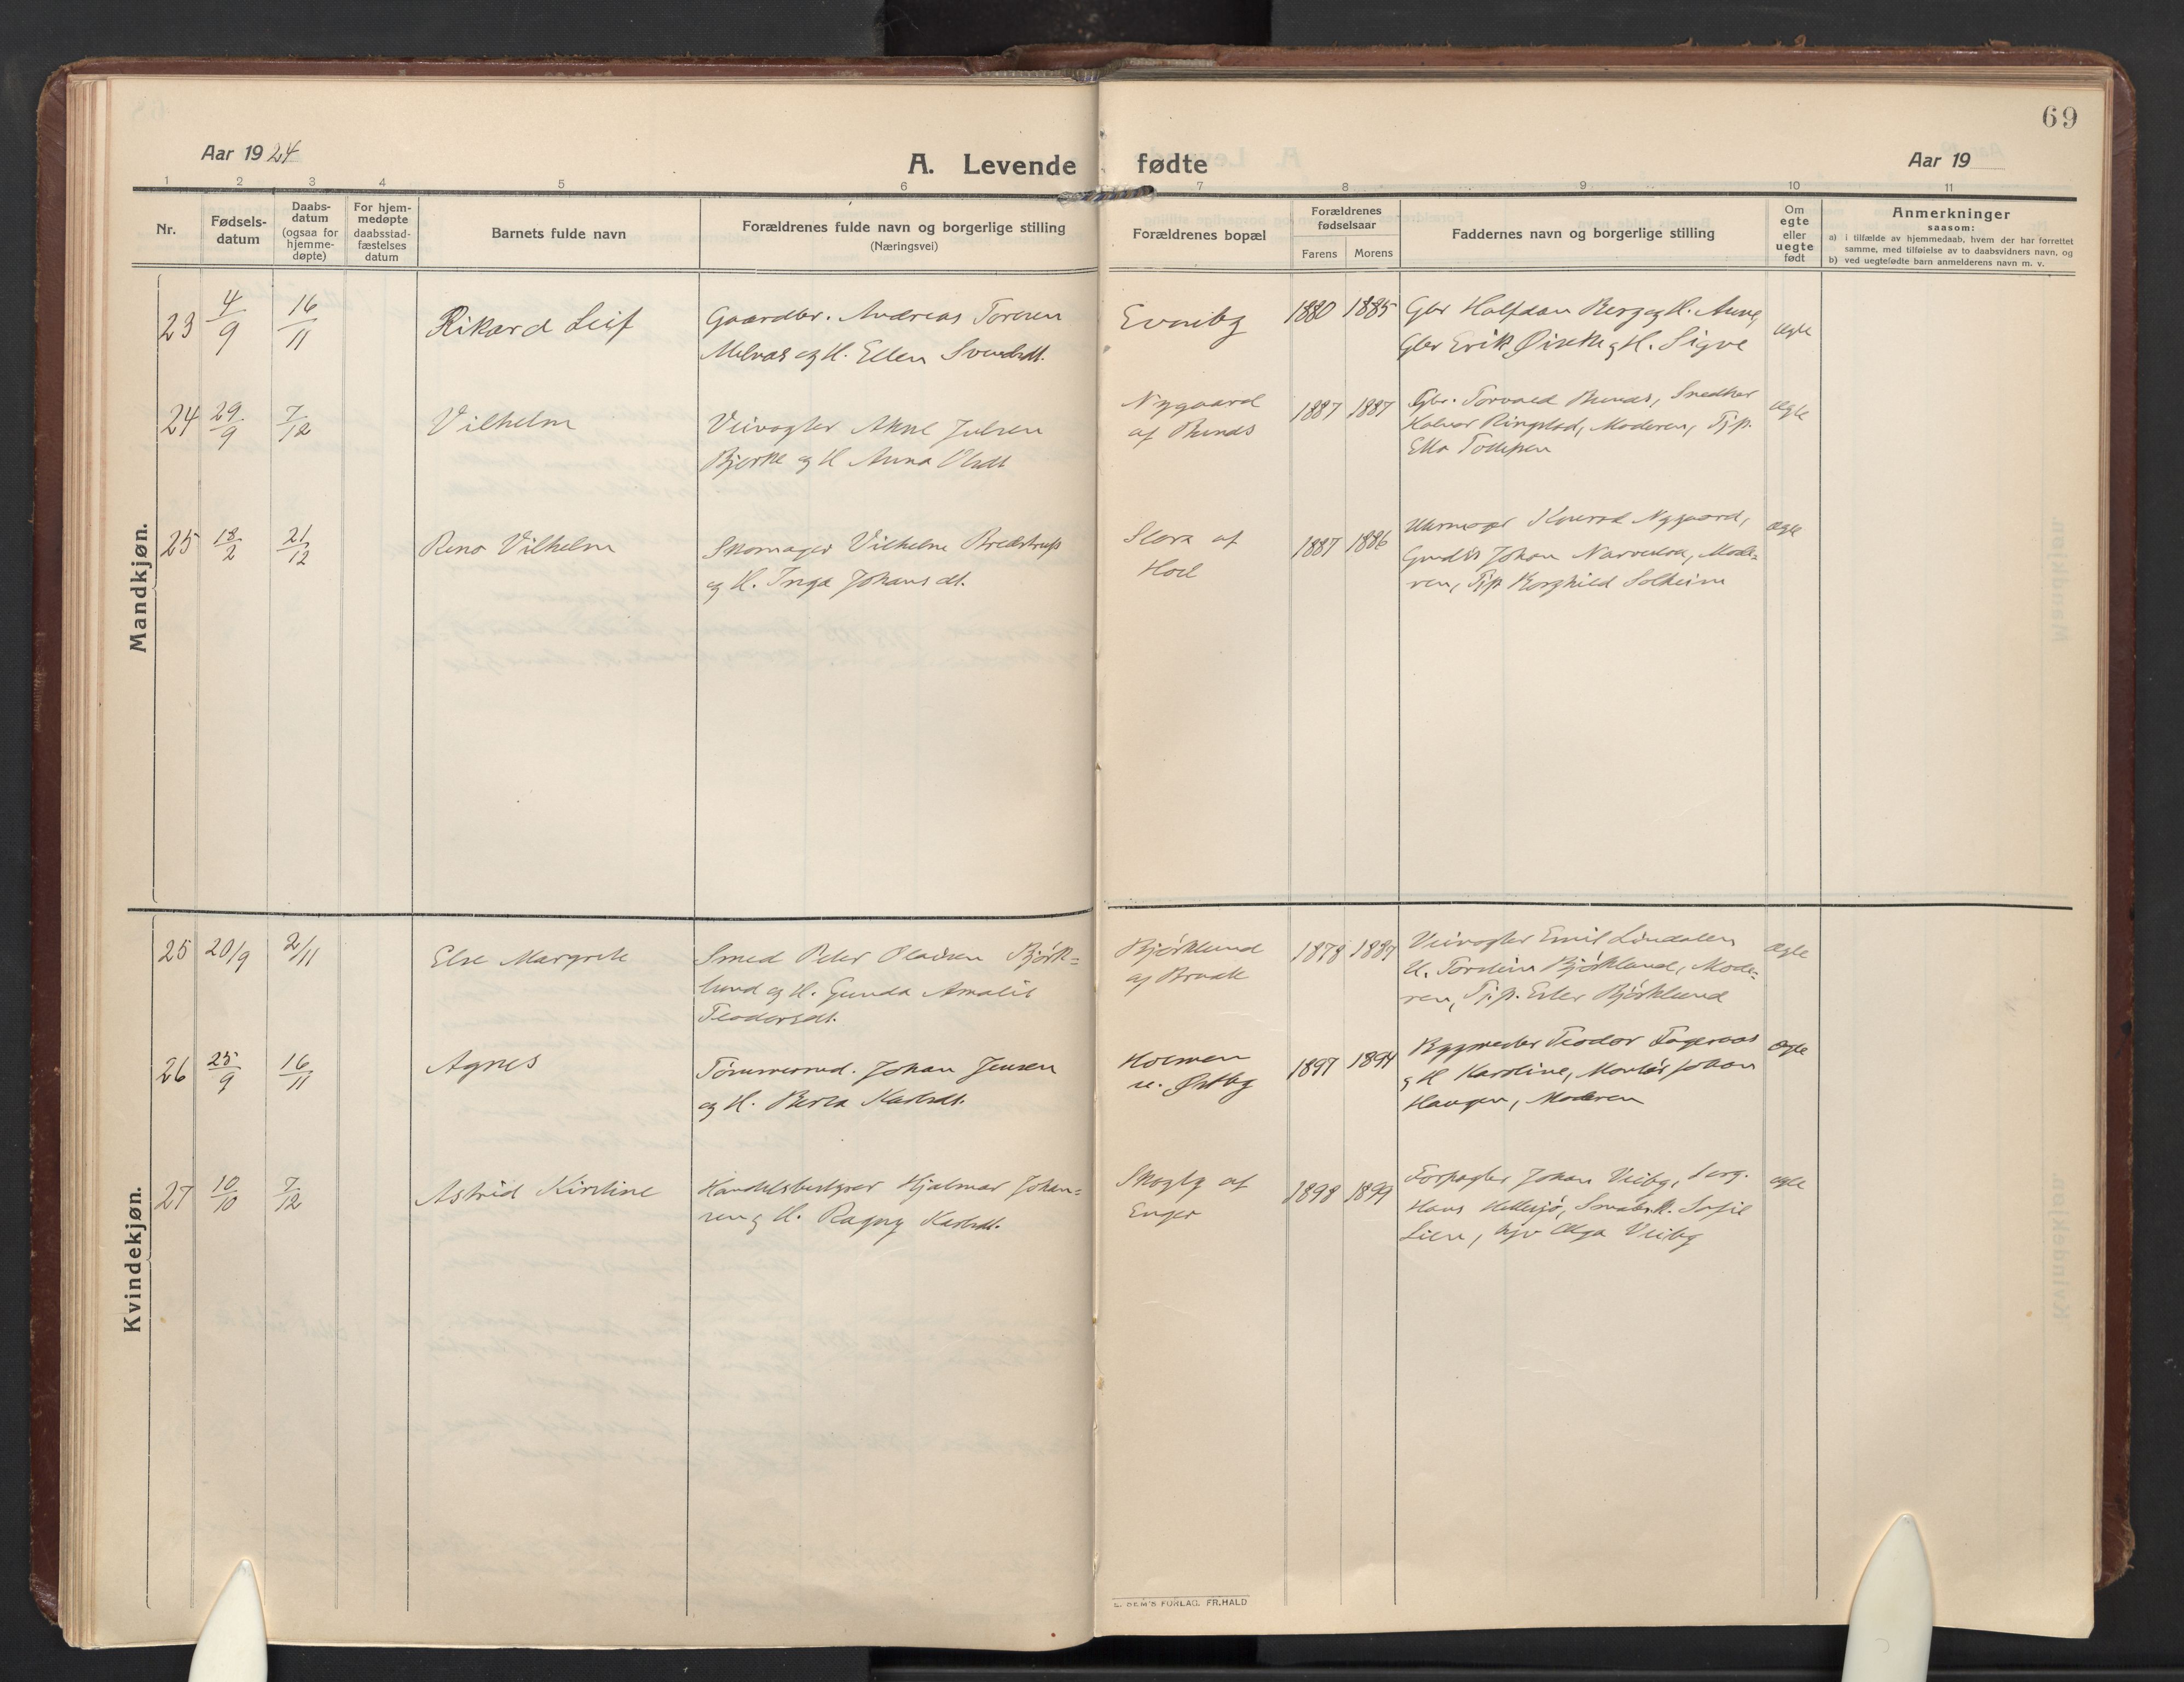 69
Aar 1924
A. Levende fødte
Aar 19
1 2 3 4 5 6 7 8 9 10 11
Nr.
Fødsels-
datum
Daabs-
datum
(ogsaa for
hjemme-
døpte)
For hjem-
medøpte
daabsstad-
fæstelses
datum
Barnets fulde navn
Forældrenes fulde navn og borgerlige stilling
(Næringsvei)
Forældrenes bopæl
Forældrenes
fødselsaar
Farens
Morens
Faddernes navn og borgerlige stilling
Om
egte
eller
uegte
født
Anmerkninger
saasom:
a) i tilfælde av hjemmedaab, hvem der har forrettet
samme, med tilføielse av to daabsvidners navn, og
b) ved uegtefødte barn anmelderens navn m. v.
Mandkjøn.
23 4/9 16/11 Rikard Leif
Gaardbr. Andreas Toresen
og H. Ellen
1880 1885
Gbr Halfdan Berg og H. Anne,
Gbr Erik H. Sigve
egte
24 29/9 7/12 Vilhelm
Veivogter Julsen
Bjerke og H Anna Olsdt
Nygaard
af
1887 1887
Gbr. Torvald Snedker
Halvor Ringstad, Moderen, Tjp.
Ella
egte
25 18/2 21/12 Vilhelm
Skomager Vilhelm Bredstrup
og H. Inga Johansdt.
af
Hoel
1887 1886
Uhrmager Konrad Nygaard,
Johan Mode-
ren, Tjp Borghild Solheim
egte
Kvindekjøn.
25 20/9 2/11 Else Margrete
Smed Peter Olaisen Bjørk=
lund og H. Gunda Amalie
Teodorsdt.
Bjørklund
af Braate
1878 1887
Veivogter Emil Lindalen
U. Torstein Bjørklund, Mode-
ren, Tjp. Ester Bjørklund
egte
26 25/9 16/11 Agnes
Tømmermd. Johan Jensen
og H. Berta Karlsdt.
Holmen
u. Østby
1897 1894
Byggmester Teodor Fageraas
og H Karoline, Montør Johan
Haugen, Moderen
egte
27 10/10 7/12 Astrid Kirstine
Handelsbestyrer Hjalmar Johan=
sen og H. Ragny Karlsdt.
Skogly af
Enger
1898 1899
Forpagter Johan Veiby, Serg.
Hans Hellesjø, Smabr. H. Sofie
Lien, hjv Olga Veiby
egte
E. SEM'S FORLAG. FR.HALD